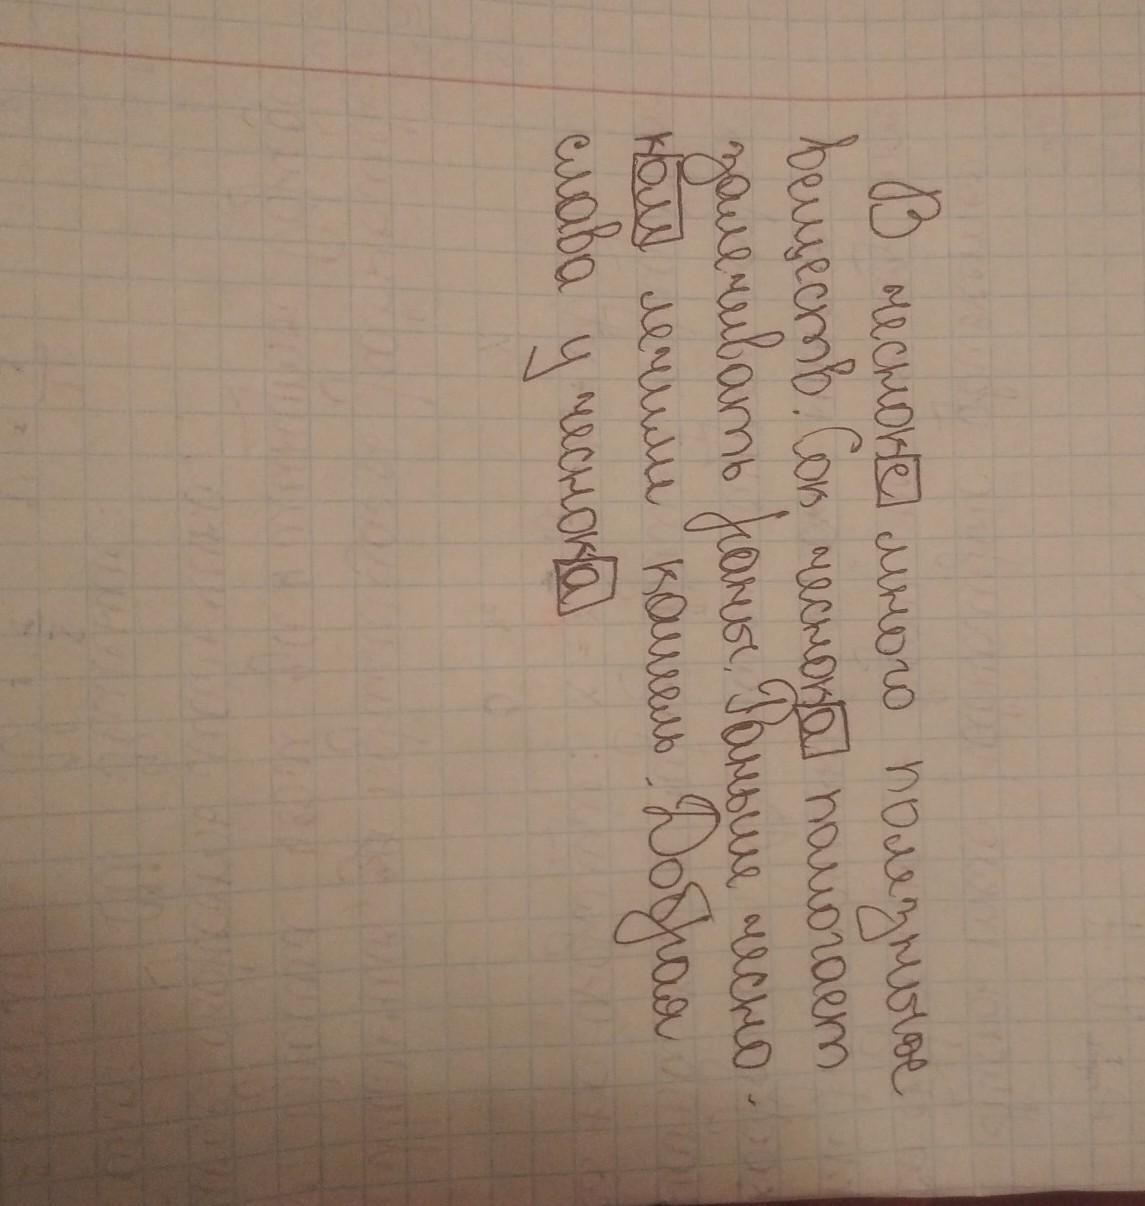 В чесноке много полезные
веществ. Сок чеснока помогает
залечивать раны. Раньше чесно-
ком лечили кашель. Добрая
слава у чеснока